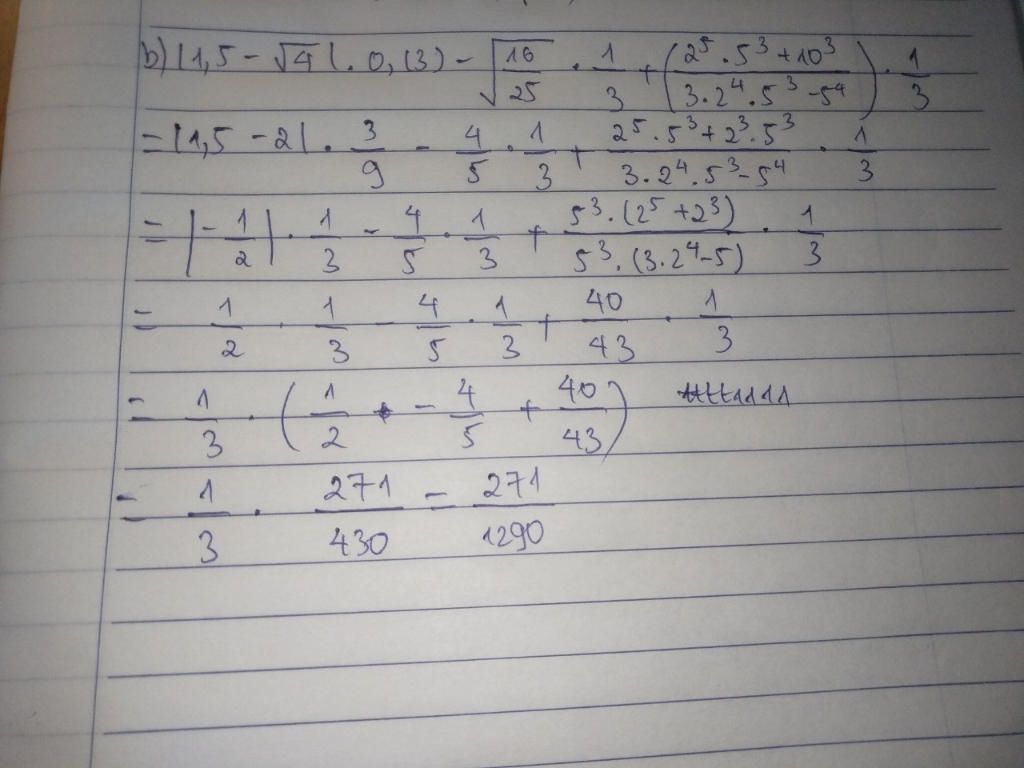 b) |1,5 - √4|. 0,(3) - √(16/25) · 1/3 + ((2⁵ · 5³ + 10³)/(3 · 2⁴ · 5³ - 5⁴)) · 1/3
= |1,5 - 2| · 3/9 - 4/5 · 1/3 + (2⁵ · 5³ + 2³ · 5³)/(3 · 2⁴ · 5³ - 5⁴) · 1/3
= |-1/2| · 1/3 - 4/5 · 1/3 + (5³ · (2⁵ + 2³))/(5³ · (3 · 2⁴ - 5)) · 1/3
= 1/2 · 1/3 - 4/5 · 1/3 + 40/43 · 1/3
= 1/3 · (1/2 - 4/5 + 40/43)
= 1/3 · 271/430 = 271/1290